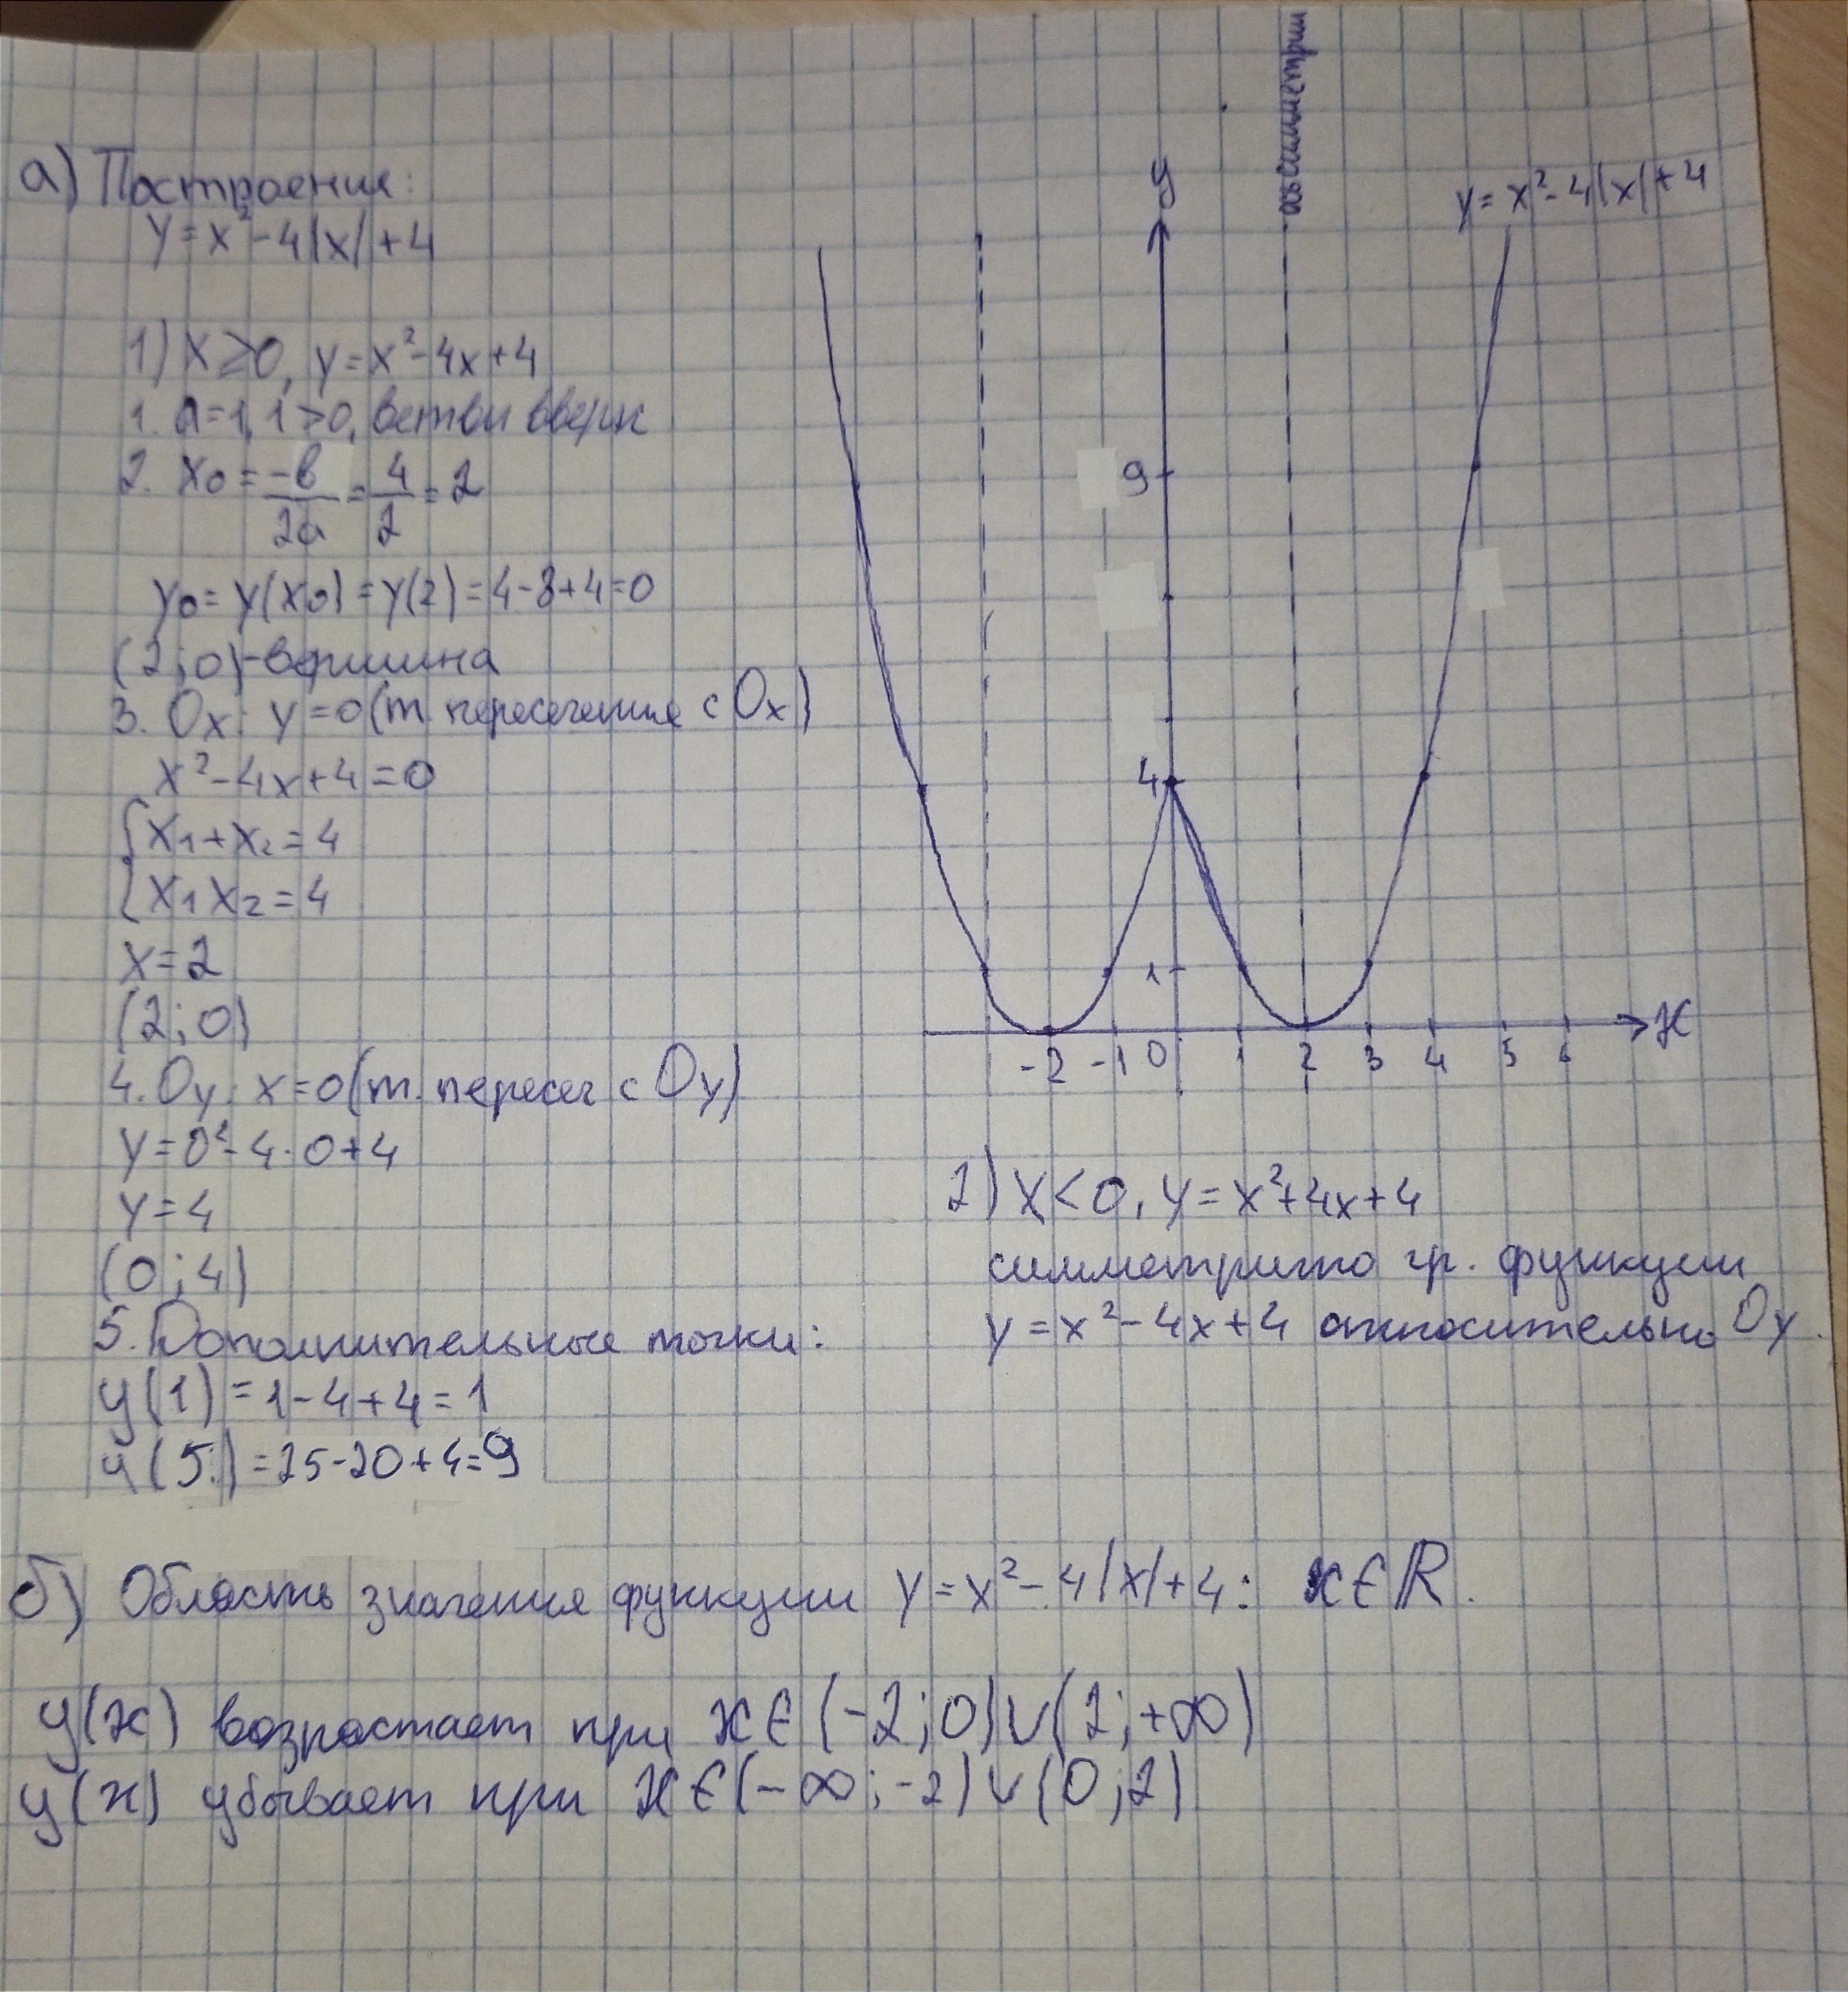 а) Построение:
y = x² - 4|x| + 4
1) x ≥ 0, y = x² - 4x + 4
1. a = 1, 1 > 0, ветви вверх
2. x₀ = -b/2a = 4/2 = 2
y₀ = y(x₀) = y(2) = 4 - 8 + 4 = 0
(2; 0) - вершина
3. Ox: y = 0 (т. пересечения с Ox)
x² - 4x + 4 = 0
{ x₁ + x₂ = 4
{ x₁ x₂ = 4
x = 2
(2; 0)
4. Oy: x = 0 (т. пересеч с Oy)
y = 0² - 4 · 0 + 4
y = 4
(0; 4)
5. Дополнительные точки:
y(1) = 1 - 4 + 4 = 1
y(5) = 25 - 20 + 4 = 9
ось симметрии
y
y = x² - 4|x| + 4
9
4
1
-2 -1 0 1 2 3 4 5 6 x
2) x < 0, y = x² + 4x + 4
симметрично гр. функции
y = x² - 4x + 4 относительно Oy.
б) Область значения функции y = x² - 4|x| + 4: x ∈ ℝ.
y(x) возрастает при x ∈ (-2; 0) ∪ (2; +∞)
y(x) убывает при x ∈ (-∞; -2) ∪ (0; 2)